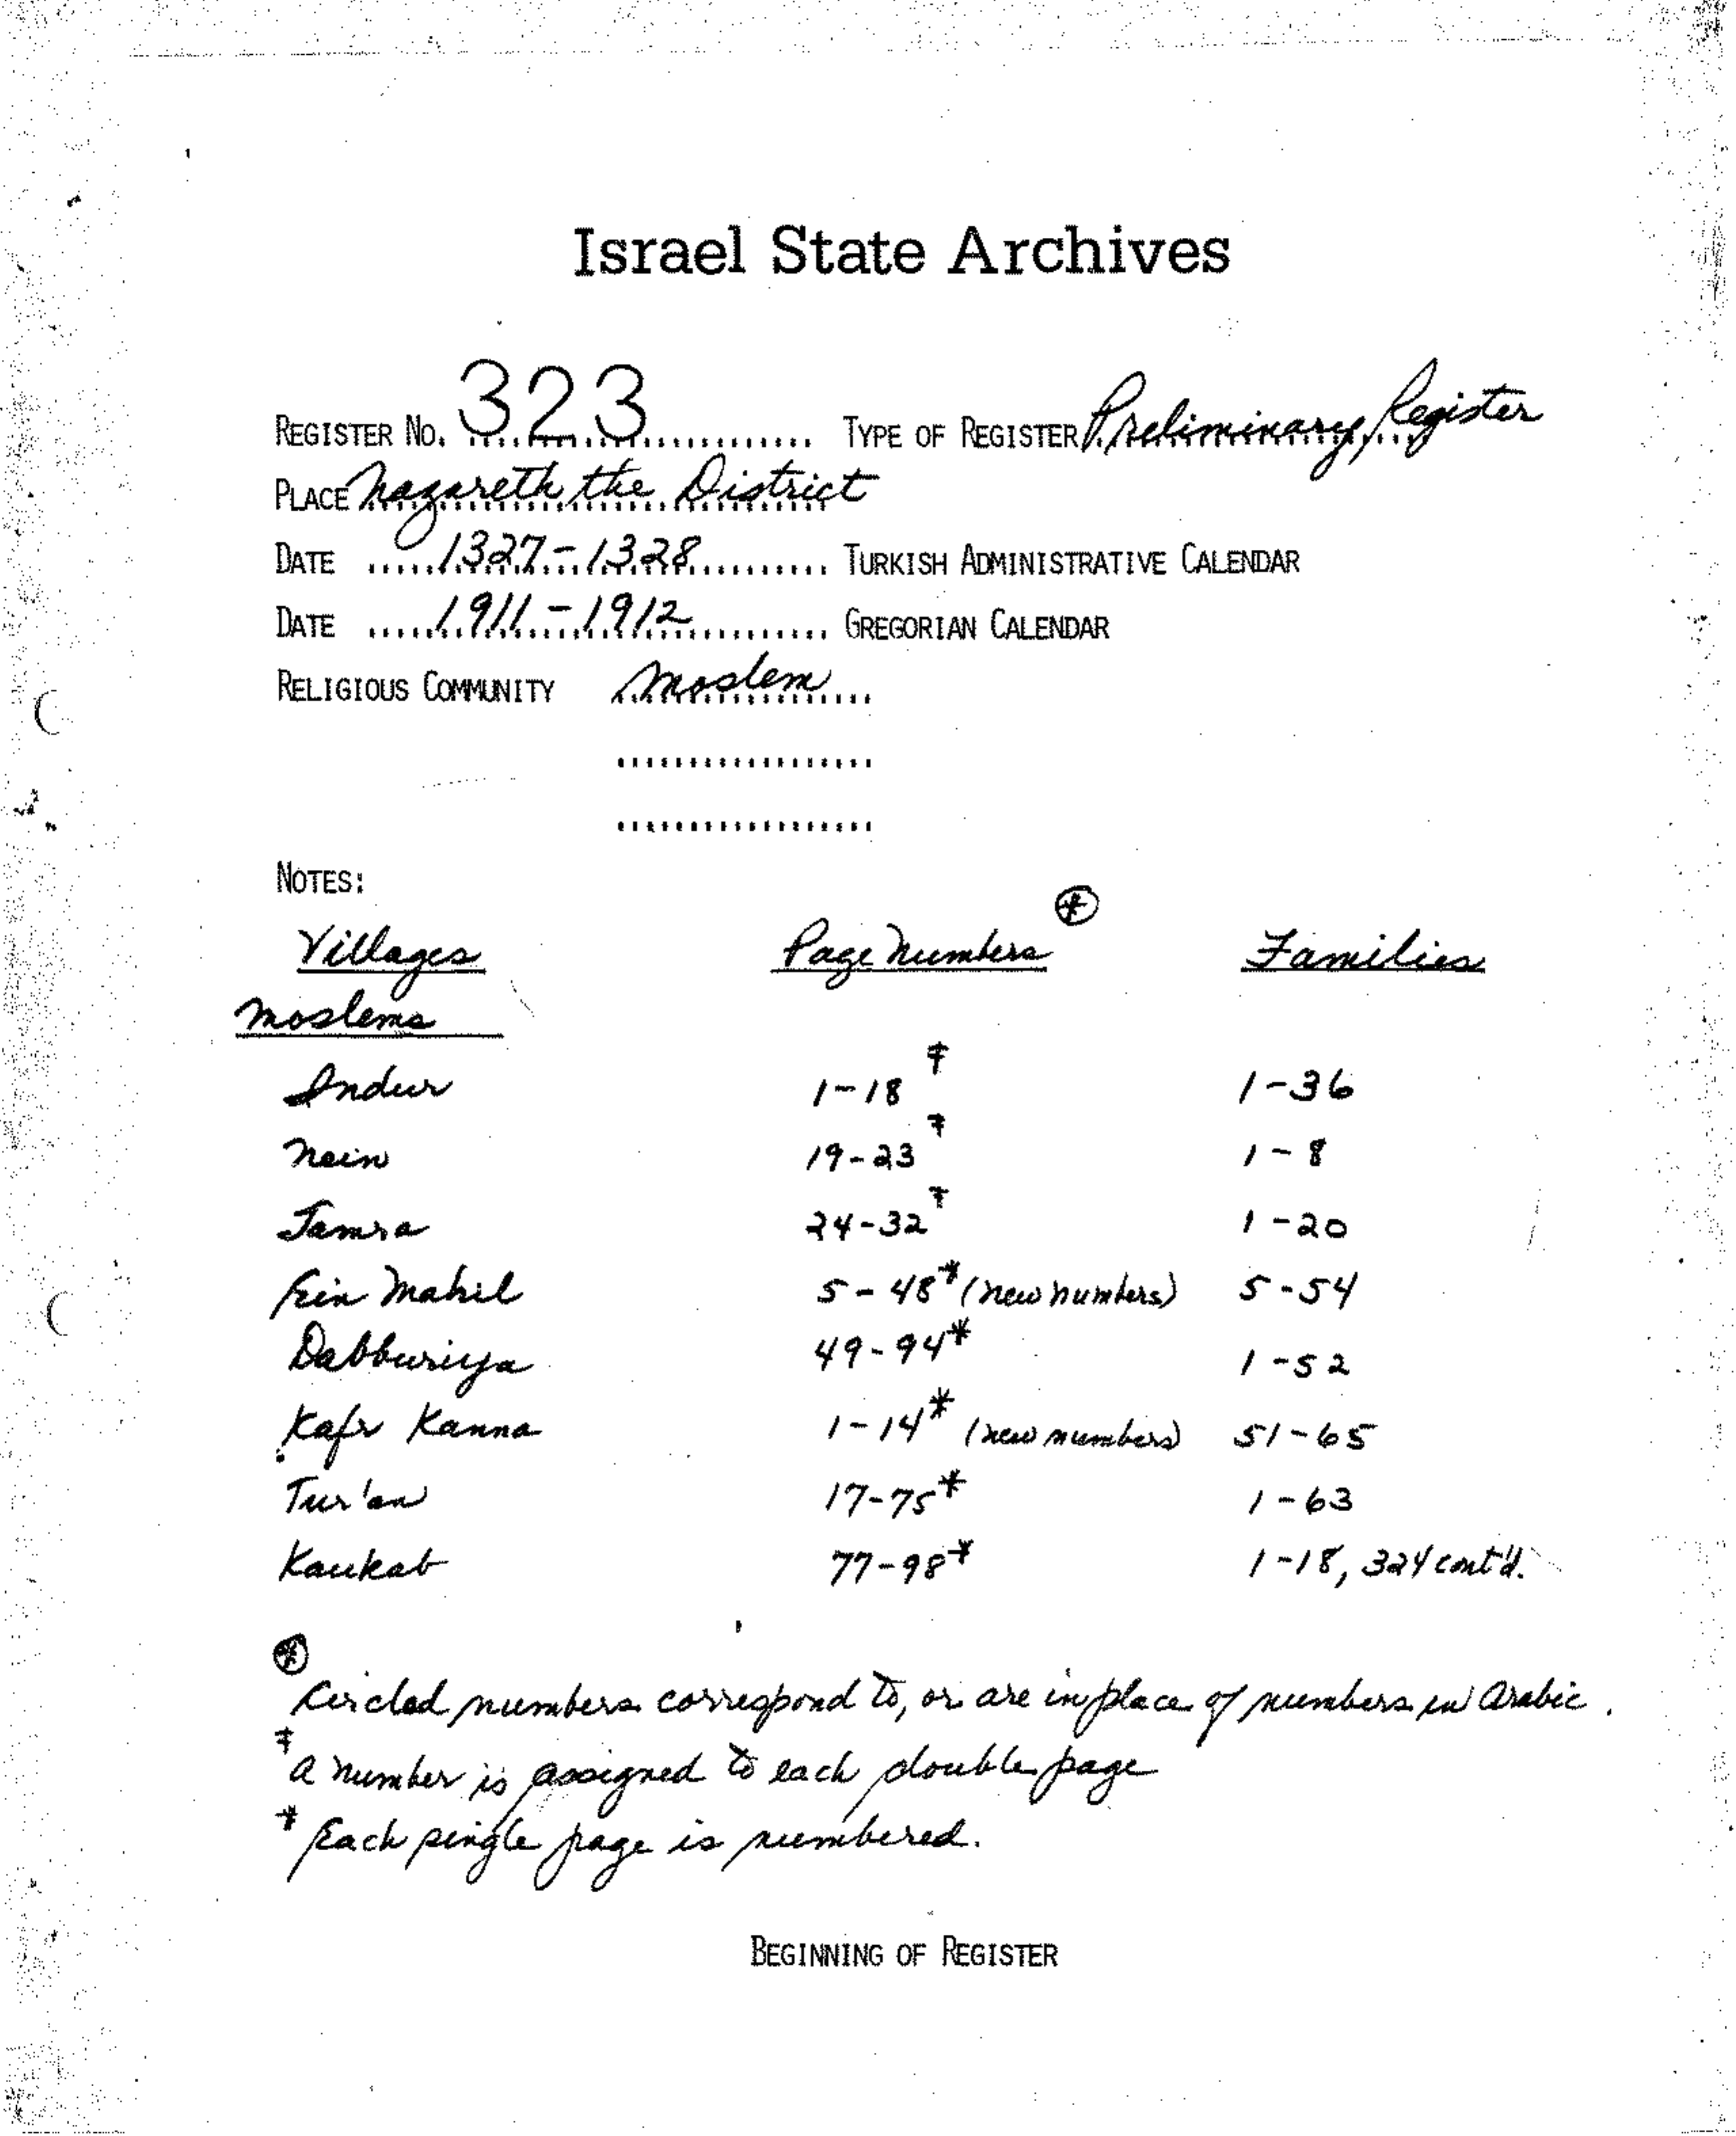 Israel State Archives
REGISTER NO. 323 TYPE OF REGISTER Preliminary Register
PLACE Nazareth the District
DATE 1327-1328 TURKISH ADMINISTRATIVE CALENDAR
DATE 1911-1912 GREGORIAN CALENDAR
RELIGIOUS COMMUNITY Moslem
NOTES:
Villages Page Numbers ⊛ Families
Moslems
Indur 1-18 ‡ 1-36
Nein 19-23 ‡ 1-8
Tamra 24-32 ‡ 1-20
Ein Mahil 5-48* (new numbers) 5-54
Dabburiya 49-94* 1-52
Kafr Kanna 1-14* (new numbers) 51-65
Tur'an 17-75* 1-63
Kaukab 77-98* 1-18, 324 cont'd.
⊛ Circled numbers correspond to, or are in place of numbers in Arabic.
‡ A number is assigned to each double page
* Each single page is numbered.
BEGINNING OF REGISTER